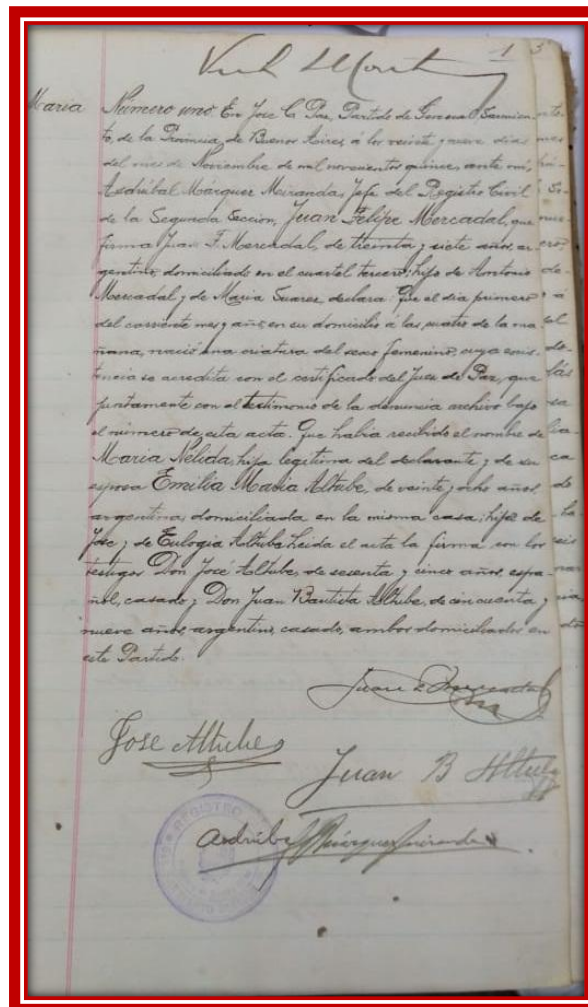 1 3
Maria Número uno. En José C. Paz, Partido de General Sarmien
to, de la Provincia de Buenos Aires, á los veinte y nueve dias
del mes de Noviembre de mil novecientos quince, ante mí,
Asdrúbal Márquez Meiranda, Jefe del Registro Civil
de la Segunda Sección, Juan Felipe Mercadal, que
firma Juan F. Mercadal, de treinta y siete años, ar
gentino, domiciliado en el cuartel tercero; hijo de Antonio
Mercadal y de Maria Suarez, declara: Que el dia primero
del corriente mes y año, en su domicilio á las cuatro de la ma
ñana, nació una criatura del sexo femenino, cuya exis
tencia se acredita con el certificado del Juez de Paz, que
juntamente con el testimonio de la denuncia archivo bajo
el número de esta acta. Que habia recibido el nombre de
Maria Nélida, hija legitima del declarante y de su
esposa Emilia Maria Altube, de veinte y ocho años,
argentina, domiciliada en la misma casa; hija de
José y de Eulogia Altube. Leida el acta la firma con los
testigos Don José Altube, de sesenta y cinco años, espa
ñol, casado y Don Juan Bautista Altube, de cincuenta y
nueve años, argentino, casado, ambos domiciliados en
este Partido.
Juan F Mercadal
José Altube
Juan B Altube
Asdrúbal Márquez Meiranda
REGISTRO